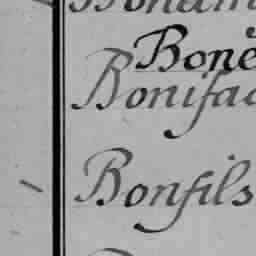 Bone
Bonifac
Bonfils